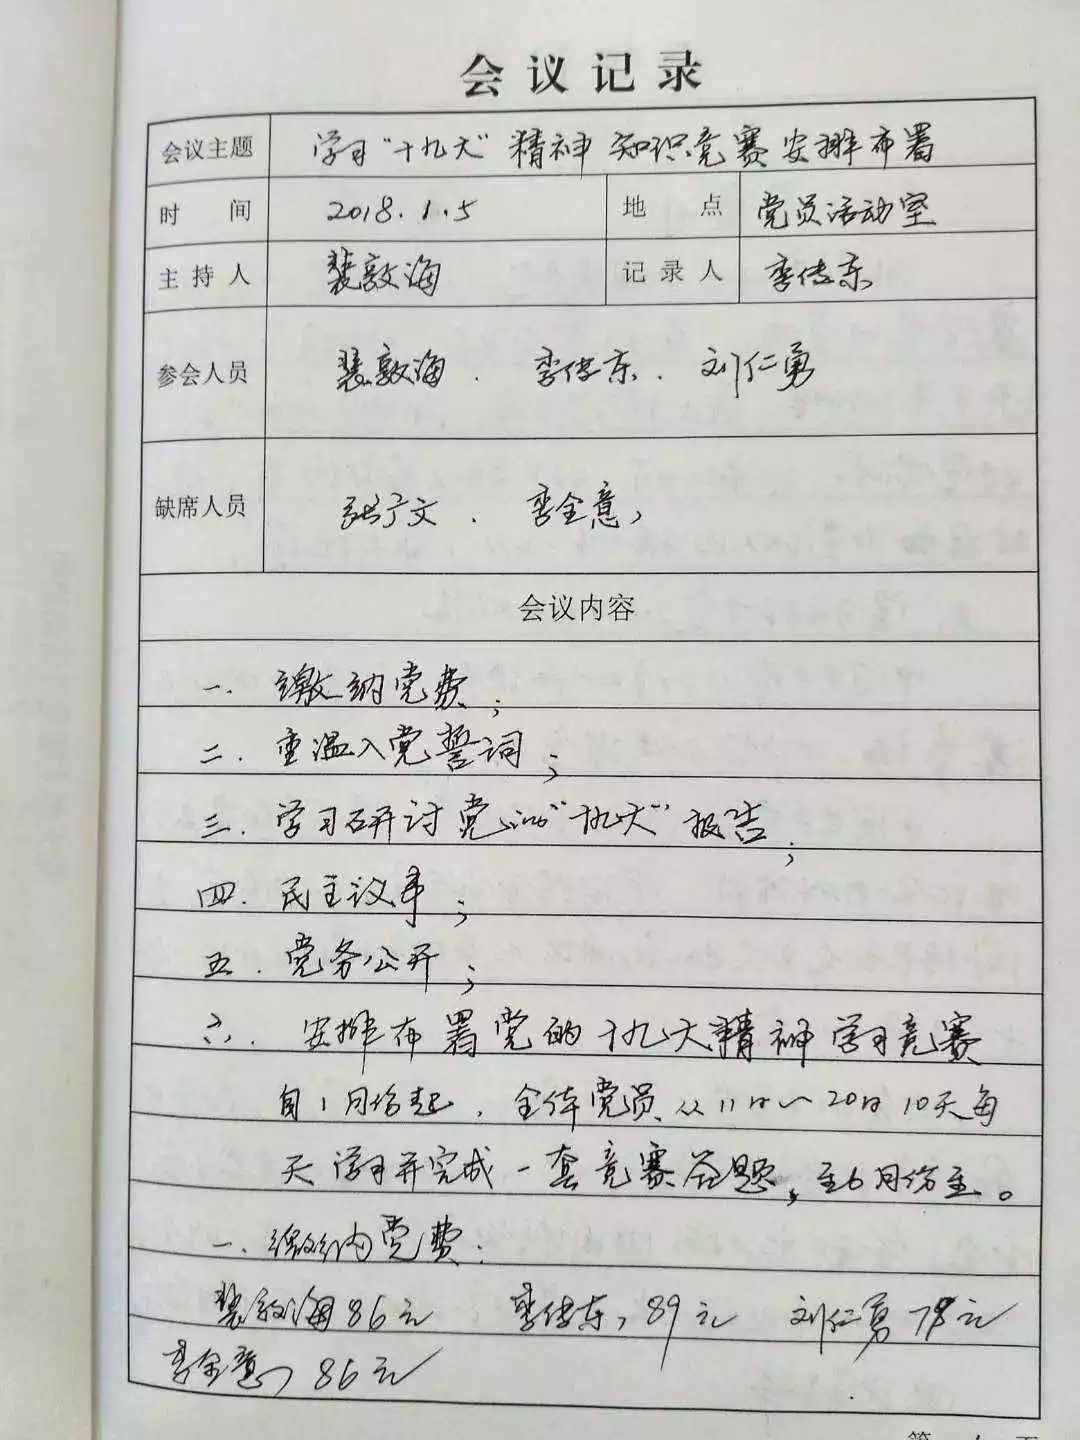 会议记录
会议主题 学习“十九大”精神知识竞赛安排布署
时间 2018.1.5 地点 党员活动室
主持人 裴敦海 记录人 李传东
参会人员 裴敦海. 李传东. 刘仁勇
缺席人员 张广文. 李全意,
会议内容
一. 缴纳党费;
二. 重温入党誓词;
三. 学习研讨党的“十九大”报告;
四. 民主议事;
五. 党务公开;
六. 安排布署党的十九大精神学习竞赛
自1月份起, 全体党员从11日~20日10天每
天学习并完成一套竞赛答题,至6月份止。
一. 缴纳党费:
裴敦海86元 李传东,89元 刘仁勇78元
李全意,86元